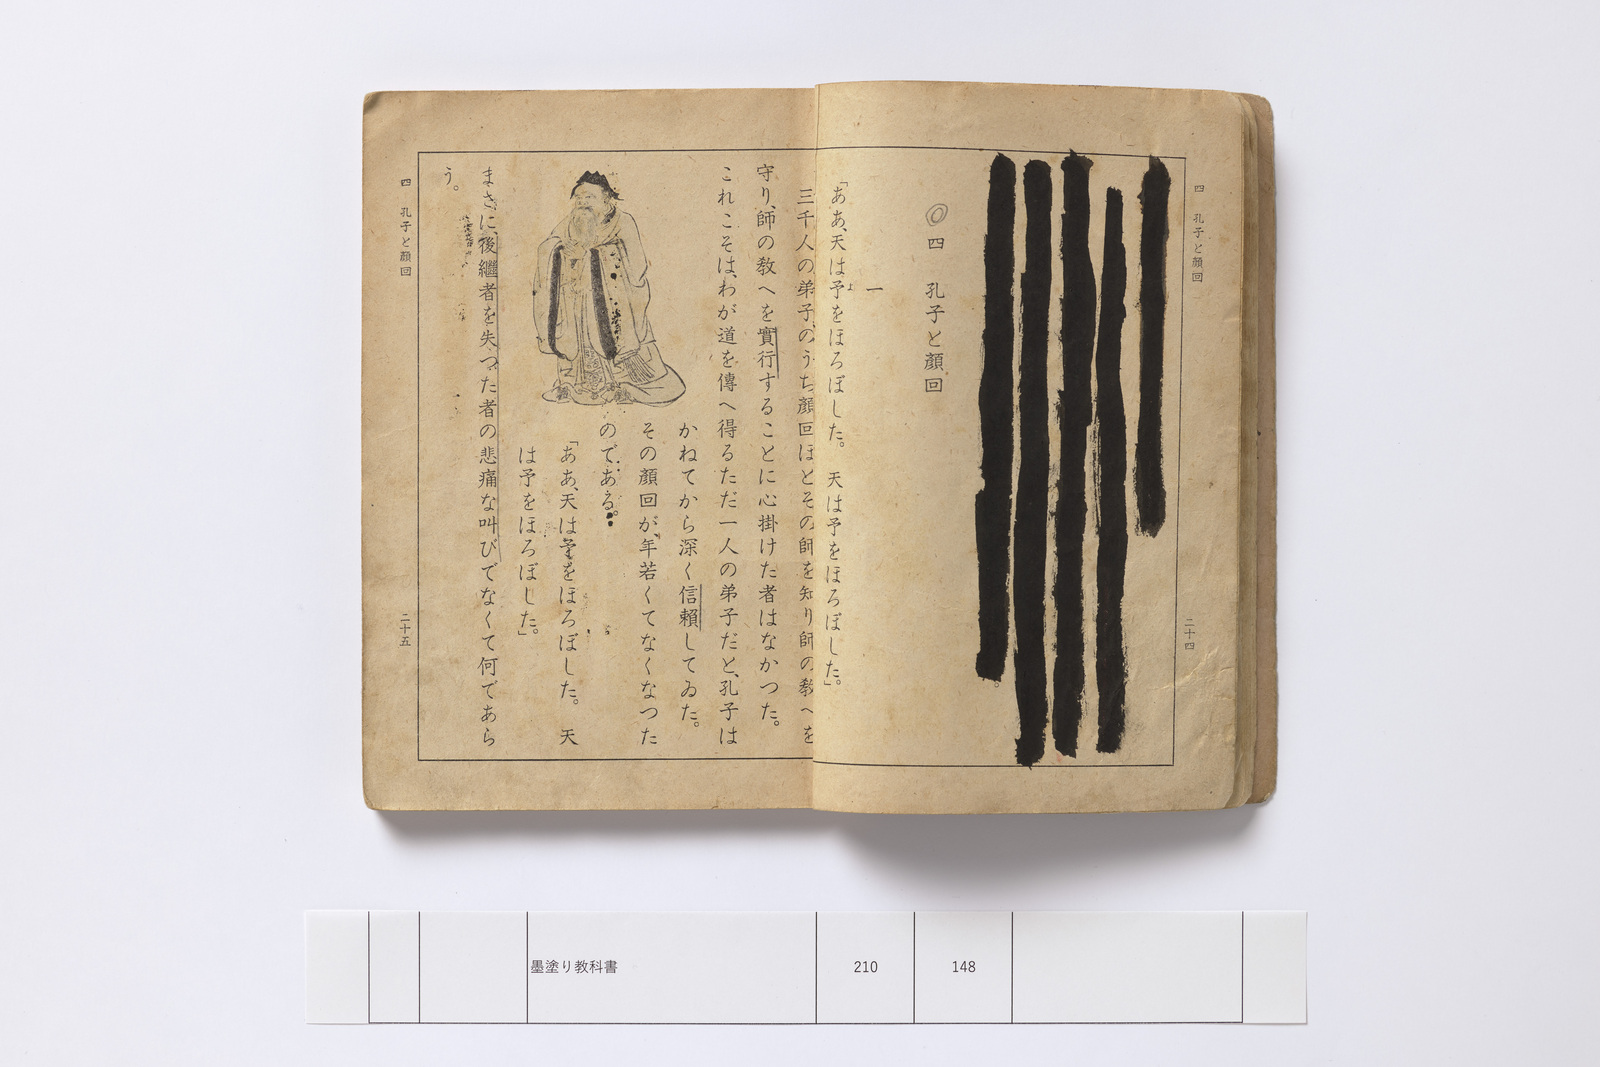 四 孔子と顔回
二十四
四 孔子と顔回
一
「ああ、天は予をほろぼした。 天は予をほろぼした。」
三千人の弟子のうち、顔回ほどその師を知り、師の教へを
守り、師の教へを實行することに心掛けた者はなかつた。
これこそは、わが道を傳へ得るただ一人の弟子だと、孔子は
かねてから深く信賴してゐた。
その顔回が、年若くてなくなつた
のである。
「ああ、天は予をほろぼした。 天
は予をほろぼした。」
まさに、後繼者を失つた者の悲痛な叫びでなくて何であら
う。
四 孔子と顔回
二十五
墨塗り教科書
210
148